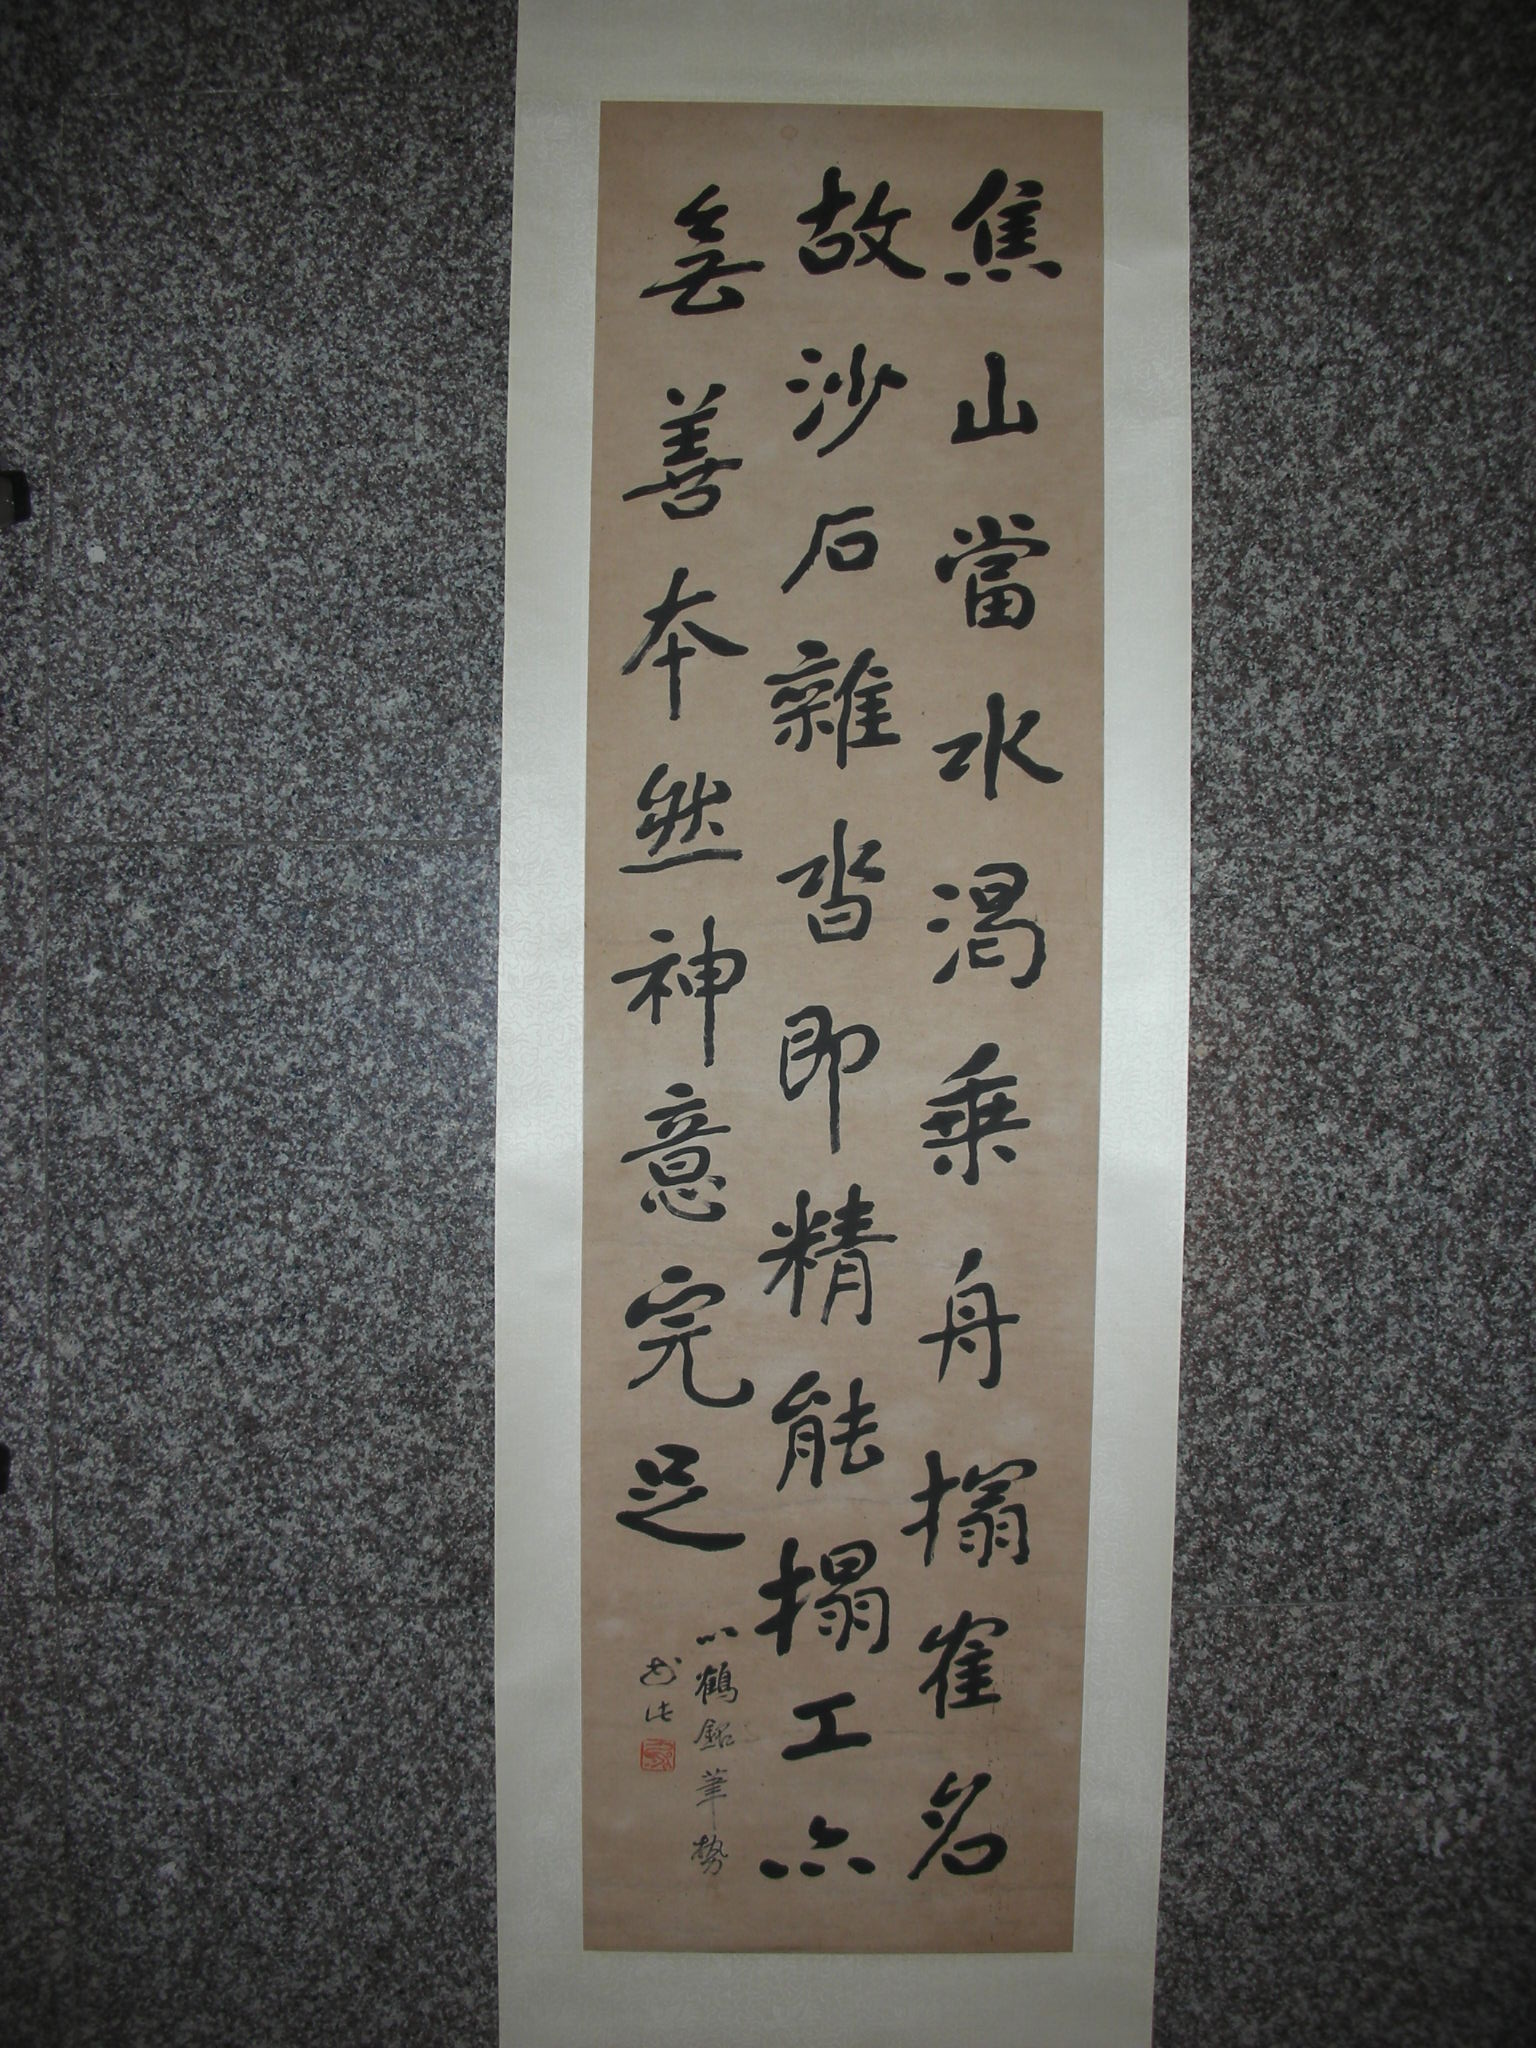 焦山當水渴乘舟搨隺名
故沙石雜沓即精能搨工亦
無善本然神意完足
以鶴銘筆勢
書此